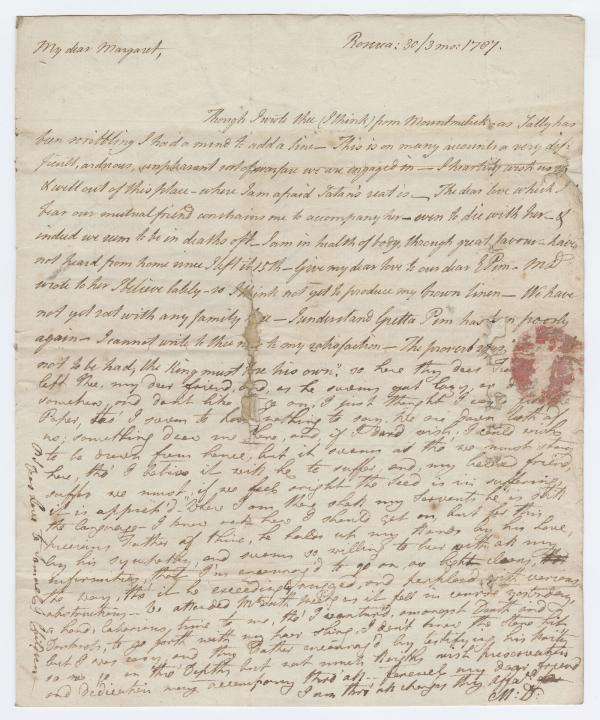 My dear Margaret,
Roscrea: 30/3 mo: 1787.
Though I wrote thee (I think) from Mountmelick, as Sally has
been scribbling I had a mind to add a line - This is on many accounts a very dif
ficult, arduous, unpleasant sort of warfare we are engaged in - I heartily wish us
well out of this place - where I am afraid Satan's seat is - The dear love which I
bear our mutual friend constrains me to accompany her - even to die with her - &
indeed we seem to be in deaths oft - I am in health of body, through great favour - have
not heard from home since I left it 15th - Give my dear love to our dear E Pim - MD
wrote to her I believe lately - so I think not yet to produce my brown linen - We have
not yet sat with any family - I understand Gretta Pim has been poorly
again - I cannot write to thee to my satisfaction - The proverb
not to be had, the King must his own." so here thy dear
left thee, my dear friend, and, as he seems got lazy, or
somehow, and don't like on, I just thought I could
Paper, tho' I seem to have nothing to say. We are given
us; something dear us here, and, if I dared wish, I could wish
to be drawn from hence, but it seems as tho' we must stay
here, tho' I believe it will be to suffer, and, my beloved friend,
suffer we must, if we feel aright the Seed is in suffering,
it is oppress'd: Where I am there shall my servants be is
the language. I know not how I should get on, but for this
precious Father of thine, he holds up my hands by his love,
by his sympathy, and seems so willing to bear with all my
infirmities, that I'm encourag'd to go on, as light clears
the way, tho' it is exceedingly rugged, and perplexed with various
obstructions - We attended M
as it fell in course yesterday,
a hard, laborious, time to me, tho' I ventured, amongst Death and
Darkness, to go forth with my bare sling, I don't know the Stone hit
but I was easy, and thy Father encourag'd by testifying his Unity
so we go in the Depths but not much Heights wish preservation
and Dedication may accompany thro' all - farewell my dear friend
I am thro' all changes thy affec.
M: D: